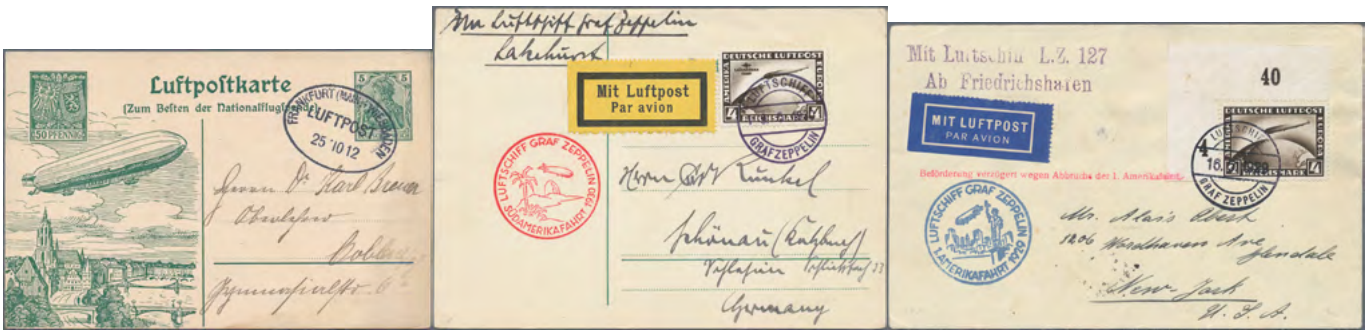 Luftpostkarte
(Zum Besten der Nationalflug
50 PFENNIG
5 5
FRANKFURT (MAIN)
LUFTPOST
25 10 12
Herrn Dr Karl
Oberlehrer
Gymnasialstr. 6
Luftschiff Graf Zeppelin
Lakehurst
Mit Luftpost
Par avion
DEUTSCHE LUFTPOST
AMERIKA
EUROPA
REICHSMARK
LUFTSCHIFF
GRAF ZEPPELIN
LUFTSCHIFF GRAF ZEPPELIN
SÜDAMERIKAFAHRT 1930
Herrn Kunkel
Schönau (Katzbach)
Schlesien
Germany
Mit Luftschiff L.Z. 127
Ab Friedrichshafen
40
MIT LUFTPOST
PAR AVION
DEUTSCHE LUFTPOST
LUFTSCHIFF
16.
GRAF ZEPPELIN
Beförderung verzögert wegen Abbruchs der 1. Amerikafahrt.
LUFTSCHIFF GRAF ZEPPELIN
1. AMERIKAFAHRT 1929
Mr. Alois
Ave
Glendale
New-York
U.S.A.